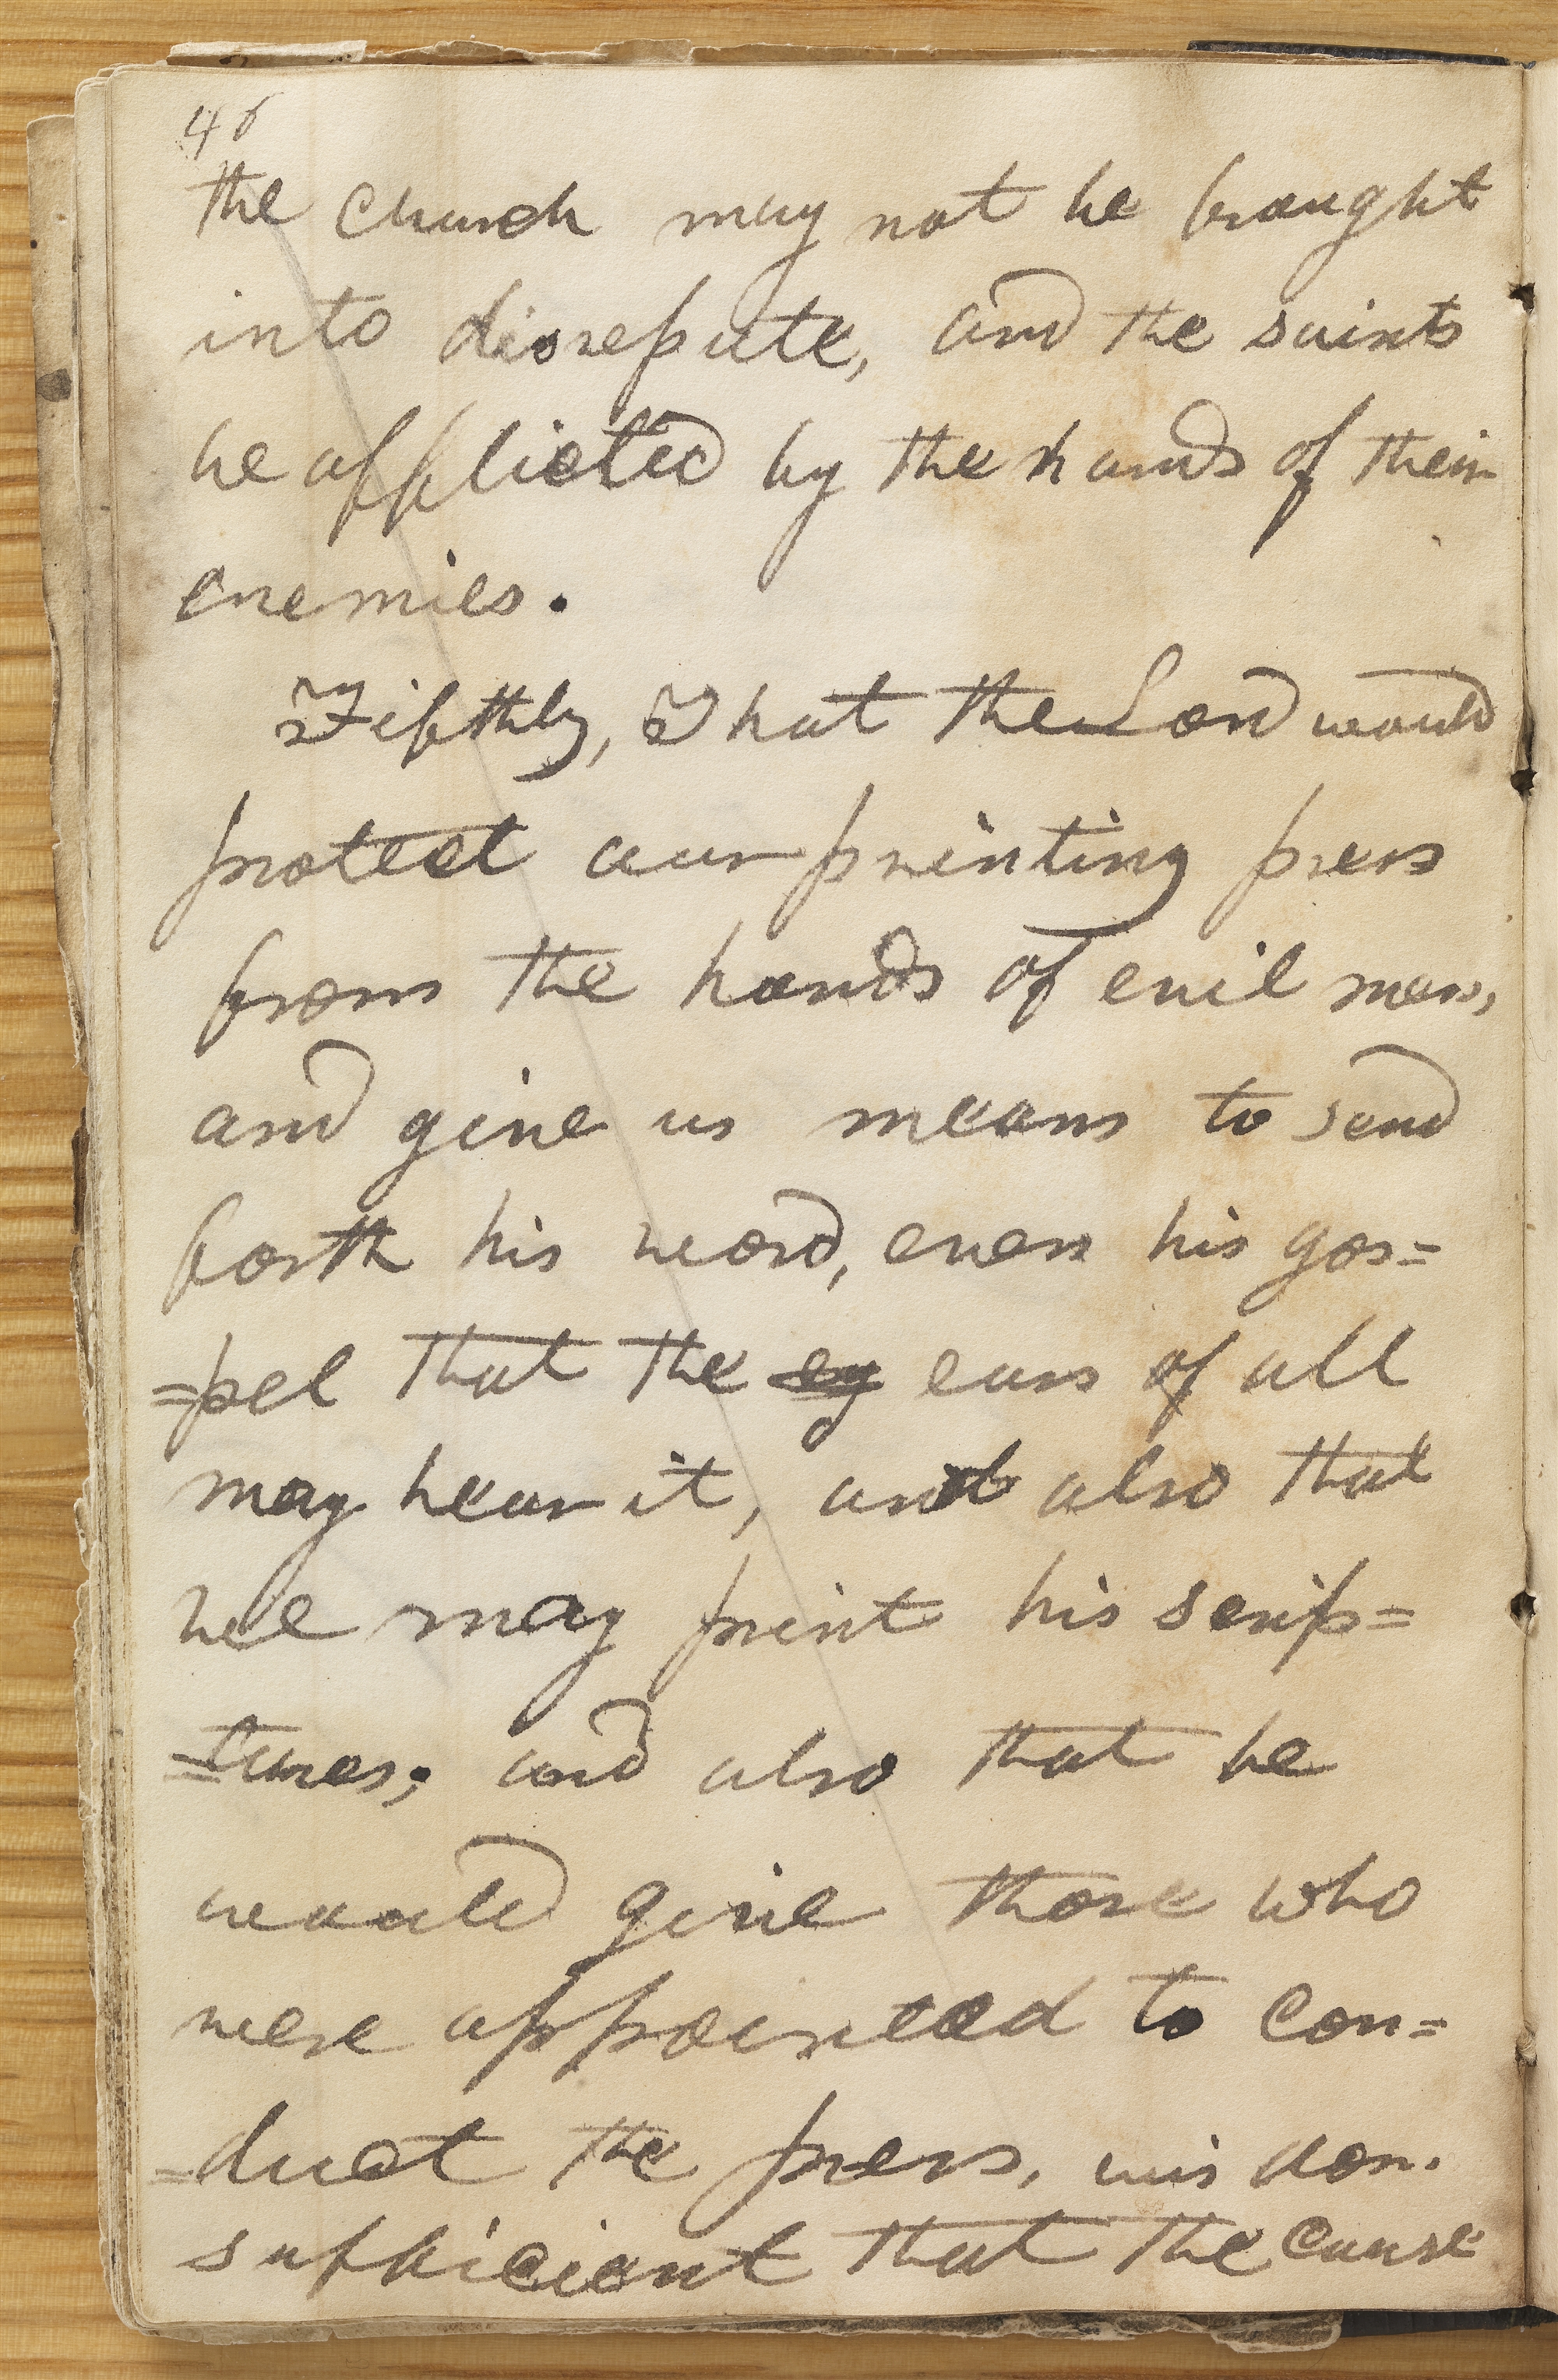 46
the church may not be brought
into disrepute, and the saints
be afflicted by the hands of their
enemies.
Fifthly, That the Lord would
protect our printing press
from the hands of evil men,
and give us means to send
forth his word, even his gos=
=pel that the ey ears of all
may hear it, and also that
we may print his scrip=
=tures; and also that he
would give those who
were appointed to con=
=duct the press, wisdom.
sufficient that the cause